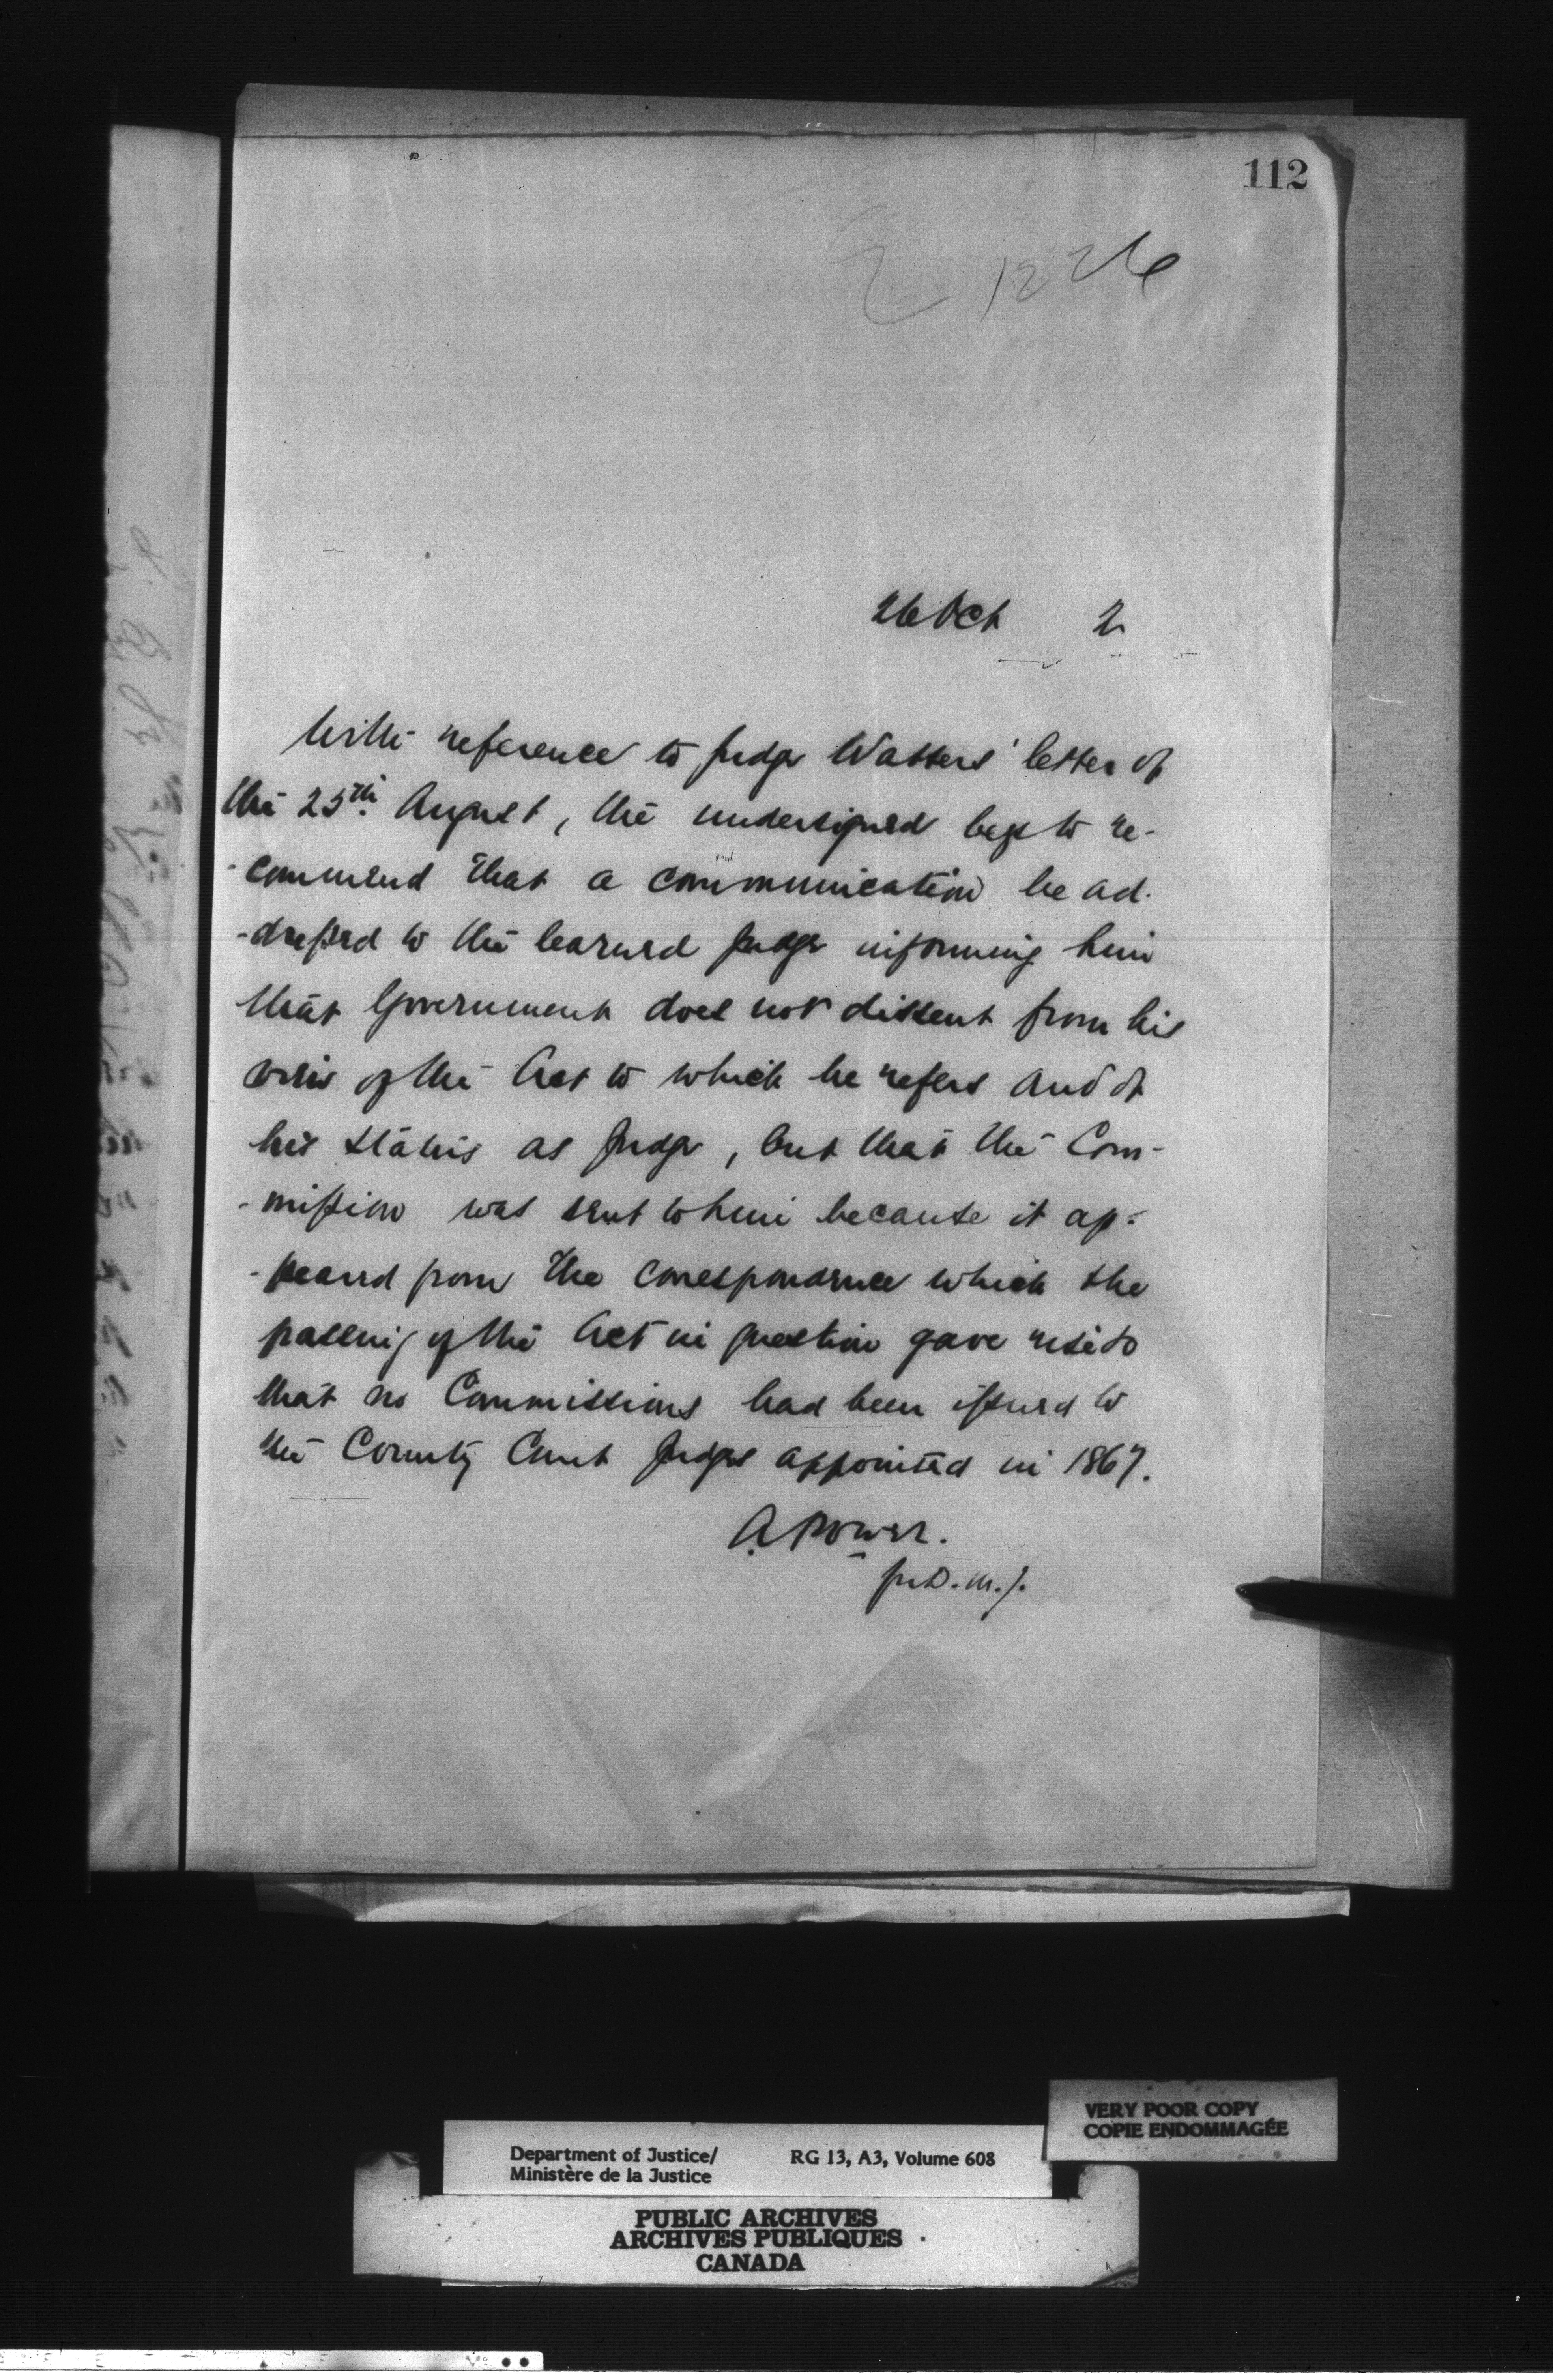 112
1226
26 Oct 2
With reference to Judge Watters' letter of
the 25th August, the undersigned begs to re-
-commend that a communication be ad-
-dressed to the learned Judge informing him
that Government does not dissent from his
view of the Act to which he refers and of
his status as Judge, but that the Com-
-mission was sent to him because it ap-
-peared from the correspondence which the
passing of the Act in question gave rise to
that no Commissions had been issued to
the County Court Judges appointed in 1867.
A Power.
for D.M.J.
VERY POOR COPY
COPIE ENDOMMAGÉE
Department of Justice/ RG 13, A3, Volume 608
Ministère de la Justice
PUBLIC ARCHIVES
ARCHIVES PUBLIQUES
CANADA